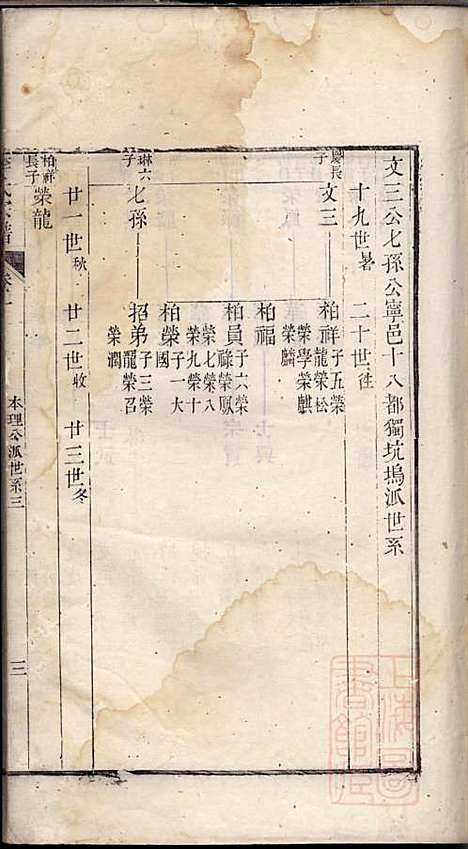 文三公七孫公寧邑十八都獨坑塢派世系
十九世暑 二十世往
慶長子 文三
柏祥 子五榮龍榮松榮學榮麒榮麟
柏福
柏員 子六榮祿榮鳳榮七榮八榮九榮十
柏榮 子一大國
琳六子 七孫
招弟 子三榮龍榮召榮潤
廿一世秋 廿二世收 廿三世冬
柏祥長子 榮龍
本理公派世系三
三
上海圖書館藏